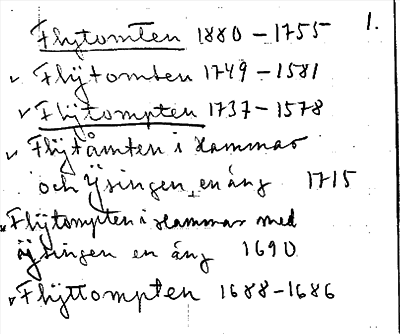 1.
Flytomten 1880 – 1755
✓ Flÿtomten 1749 – 1581
✓ Flÿtompten 1737 – 1578
✓ Flÿtåmten i Hammar
och Ÿsingen, en äng 1715
Flÿtompten i Hammar med
Ÿsingen en äng 1690
✓ Flÿttompten 1688–1686